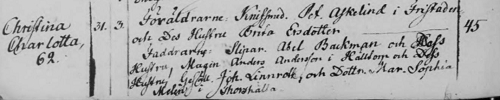 Christina
Charlotta,
62.
31. 3. Föräldrarne: Knifsmed. Pet. Askelind i Fristaden
och Des Hustru Brita Ersdotter 45
Faddrarne: Slipar. Abel Backman och Dess
Hustru, Magin Anders Andersson i Hällstom och Dess
Hustru, Gesällen Joh. Linnrot, och Dottr. Mar. Sophia
Molin i Thorshälla.